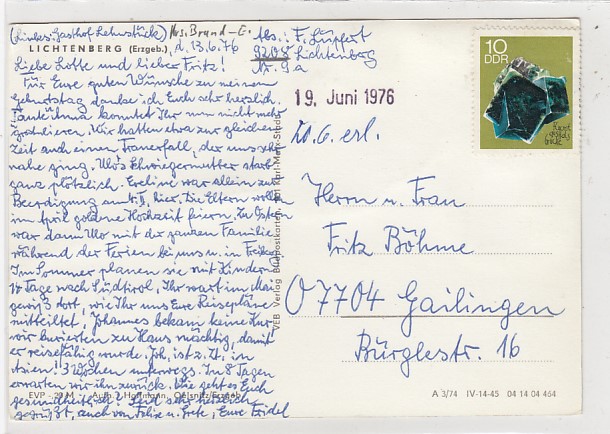 (Linkes: Gasthof Lehnstück) Hrs. Brand-E.
LICHTENBERG (Erzgeb.) d. 13.6.76
Liebe Lotte und lieber Fritz!
Für Eure guten Wünsche zu meinem
Geburtstag danke ich Euch sehr herzlich.
konntet Ihr nun nicht mehr
gratulieren. Wir hatten etwa zur gleichen
Zeit auch einen Trauerfall, der uns sehr
nahe ging. Ulo's Schwiegermutter starb
ganz plötzlich. Eveline war allein zur
Beerdigung hier. Die Eltern wollten
im April goldene Hochzeit feiern. Zu Ostern
war dann Ulo mit der ganzen Familie
während der Ferien bei uns u. in
Im Sommer planen sie mit Kindern
14 Tage nach Südtirol, Ihr wart im Mai
gewiß dort, wie Ihr uns Eure Reisepläne
mitteiltet, Johannes bekam keine Kur
wir kurierten zu Haus mächtig, damit
er reisefähig wurde. Joh. ist z. Zt. in
Asien! 3 Wochen unterwegs. In 8 Tagen
erwarten wir ihn zurück. Wie geht es Euch
gesundheitlich? Seid sehr herzlich
gegrüßt, auch von Felix u. Grete, Eure Friedel
EVP -,20 M Aufn.: Hoffmann, Oelsnitz/Erzgeb.
VEB Verlag Bild-Postkarten, Karl-Marx-Stadt
Abs.: F. Lüpfert
9291 Lichtenberg
Nr. 9a
10
DDR
19. Juni 1976
20.6. erl.
Herrn u. Frau
Fritz Böhme
07704 Gailingen
Bürglestr. 16
A 3/74 IV-14-45 04 14 04 464